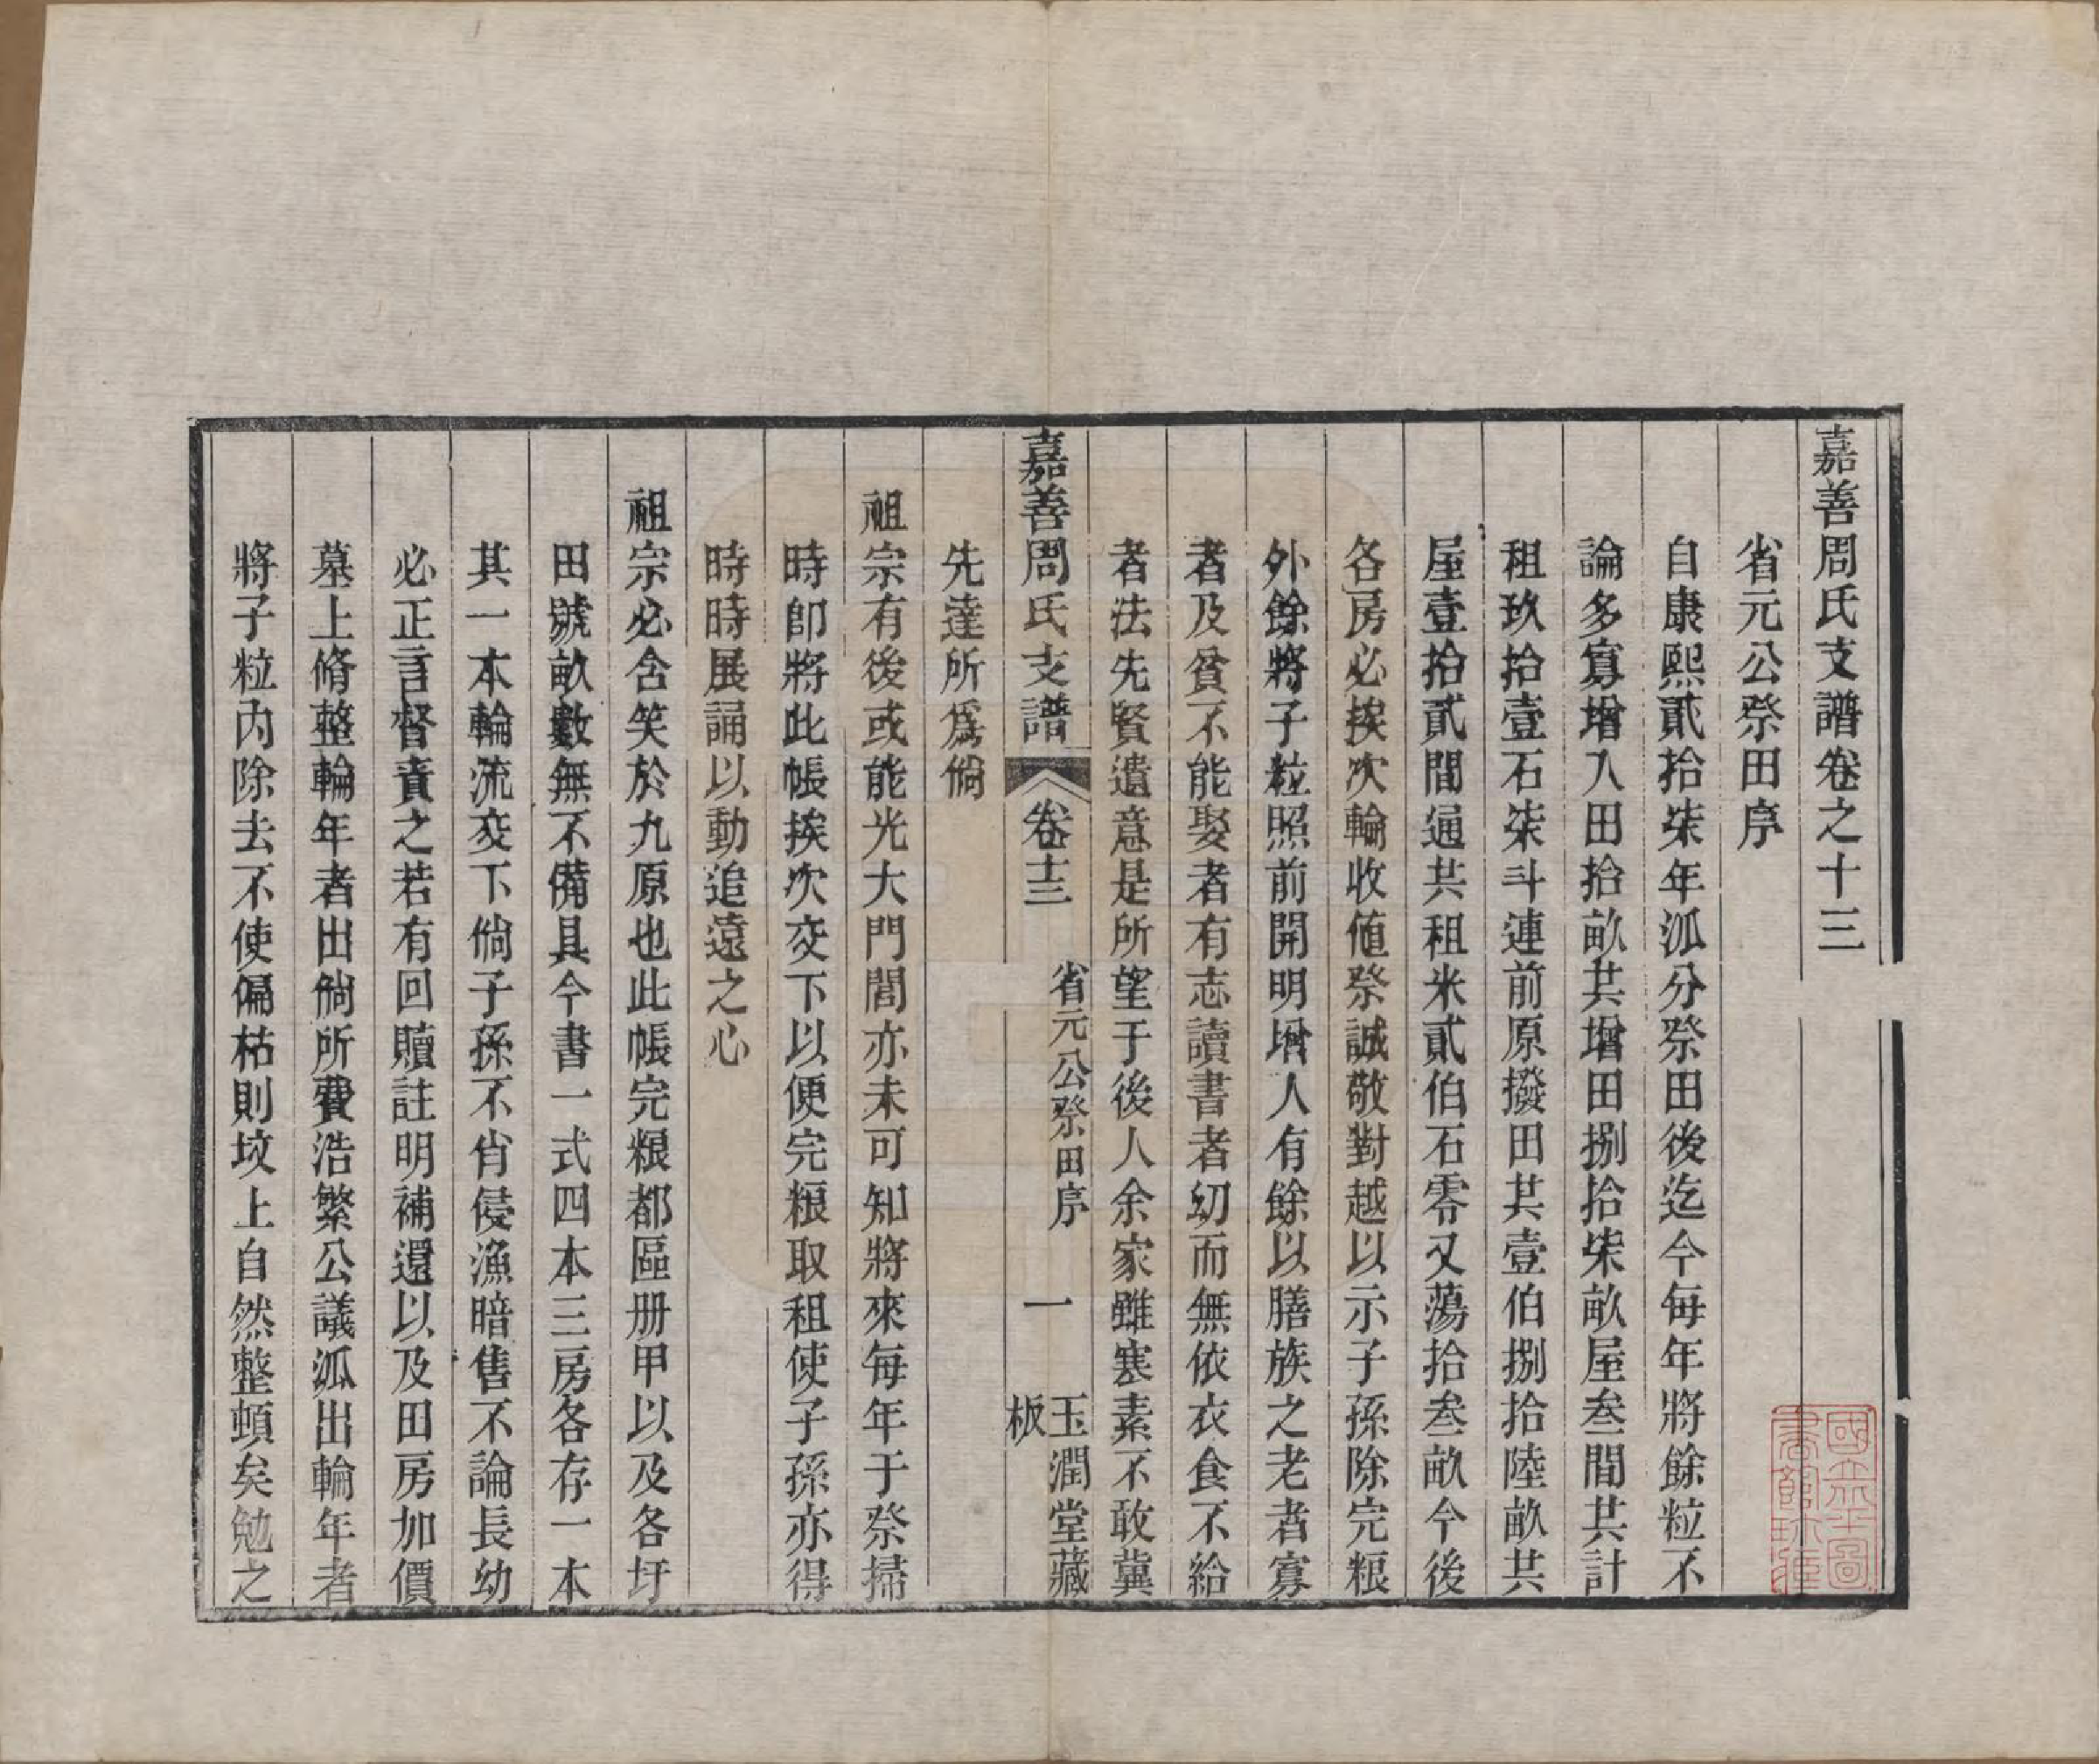 嘉善周氏支譜卷之十三
省元公祭田序
自康熙貳拾柒年派分祭田後迄今每年將餘粒不
論多寡增入田拾畝共增田捌拾柒畝屋叁間共計
租玖拾壹石柒斗連前原撥田共壹伯捌拾陸畝共
屋壹拾貳間通共租米貳伯石零又蕩拾叁畝今後
各房必挨次輪收值祭誠敬對越以示子孫除完粮
外餘將子粒照前開明增人有餘以膳族之老者寡
者及貧不能娶者有志讀書者幼而無依衣食不給
者法先賢遺意是所望于後人余家雖寒素不敢冀
嘉善周氏支譜 卷十三 省元公祭田序 一 玉潤堂藏板
先達所爲倘
祖宗有後或能光大門閭亦未可知將來每年于祭掃
時卽將此帳挨次交下以便完粮取租使子孫亦得
時時展誦以動追遠之心
祖宗必含笑於九原也此帳完粮都區册甲以及各圩
田號畝數無不備具今書一式四本三房各存一本
其一本輪流交下倘子孫不肖侵漁暗售不論長幼
必正言督責之若有回贖註明補還以及田房加價
墓上脩整輪年者出倘所費浩繁公議派出輪年者
將子粒內除去不使偏枯則坟上自然整頓矣勉之
國立北平圖書館珍藏